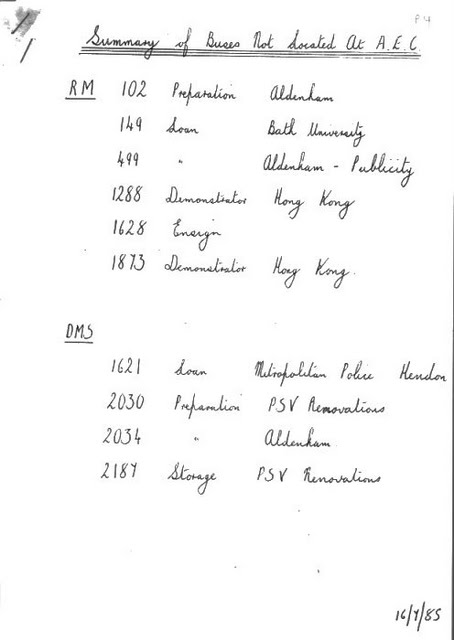 P4
Summary of Buses Not Located At A.E.C.
RM 102 Preparation Aldenham
149 Loan Bath University
499 " Aldenham - Publicity
1288 Demonstrator Hong Kong
1628 Ensign
1873 Demonstrator Hong Kong.
DMS
1621 Loan Metropolitan Police Hendon
2030 Preparation PSV Renovations
2034 " Aldenham
2187 Storage PSV Renovations
16/7/85